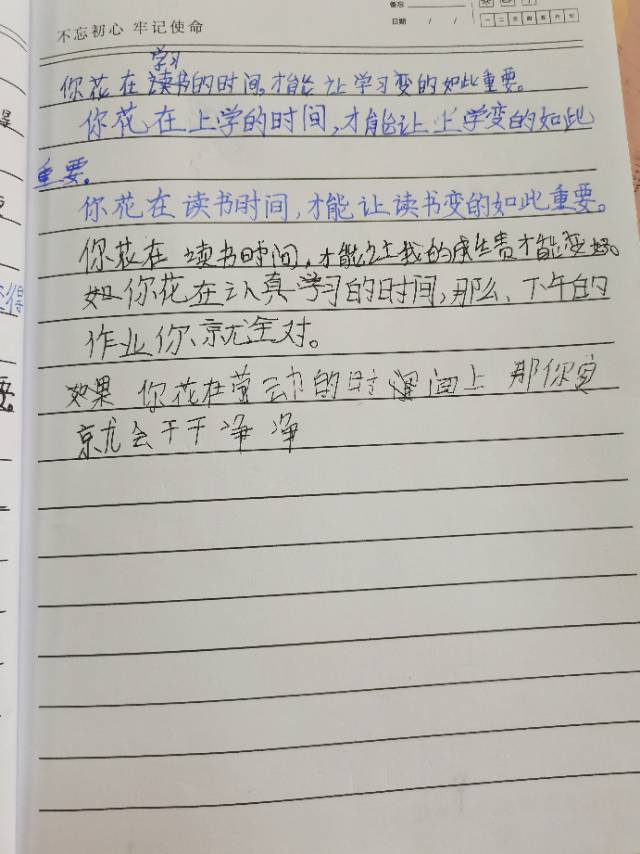 不忘初心 牢记使命
备忘
日期 / /
一 二 三 四 五 六 日
学习
你花在读书的时间,才能让学习变的如此重要。
你花在上学的时间,才能让上学变的如此
重要。
你花在读书时间,才能让读书变的如此重要。
你花在读书时间,才能让我的责才能变好。
如你花在认真学习的时间,那么、下午的
作业你就全对。
效果 你花在劳动的时间上 那你
就会干干净净